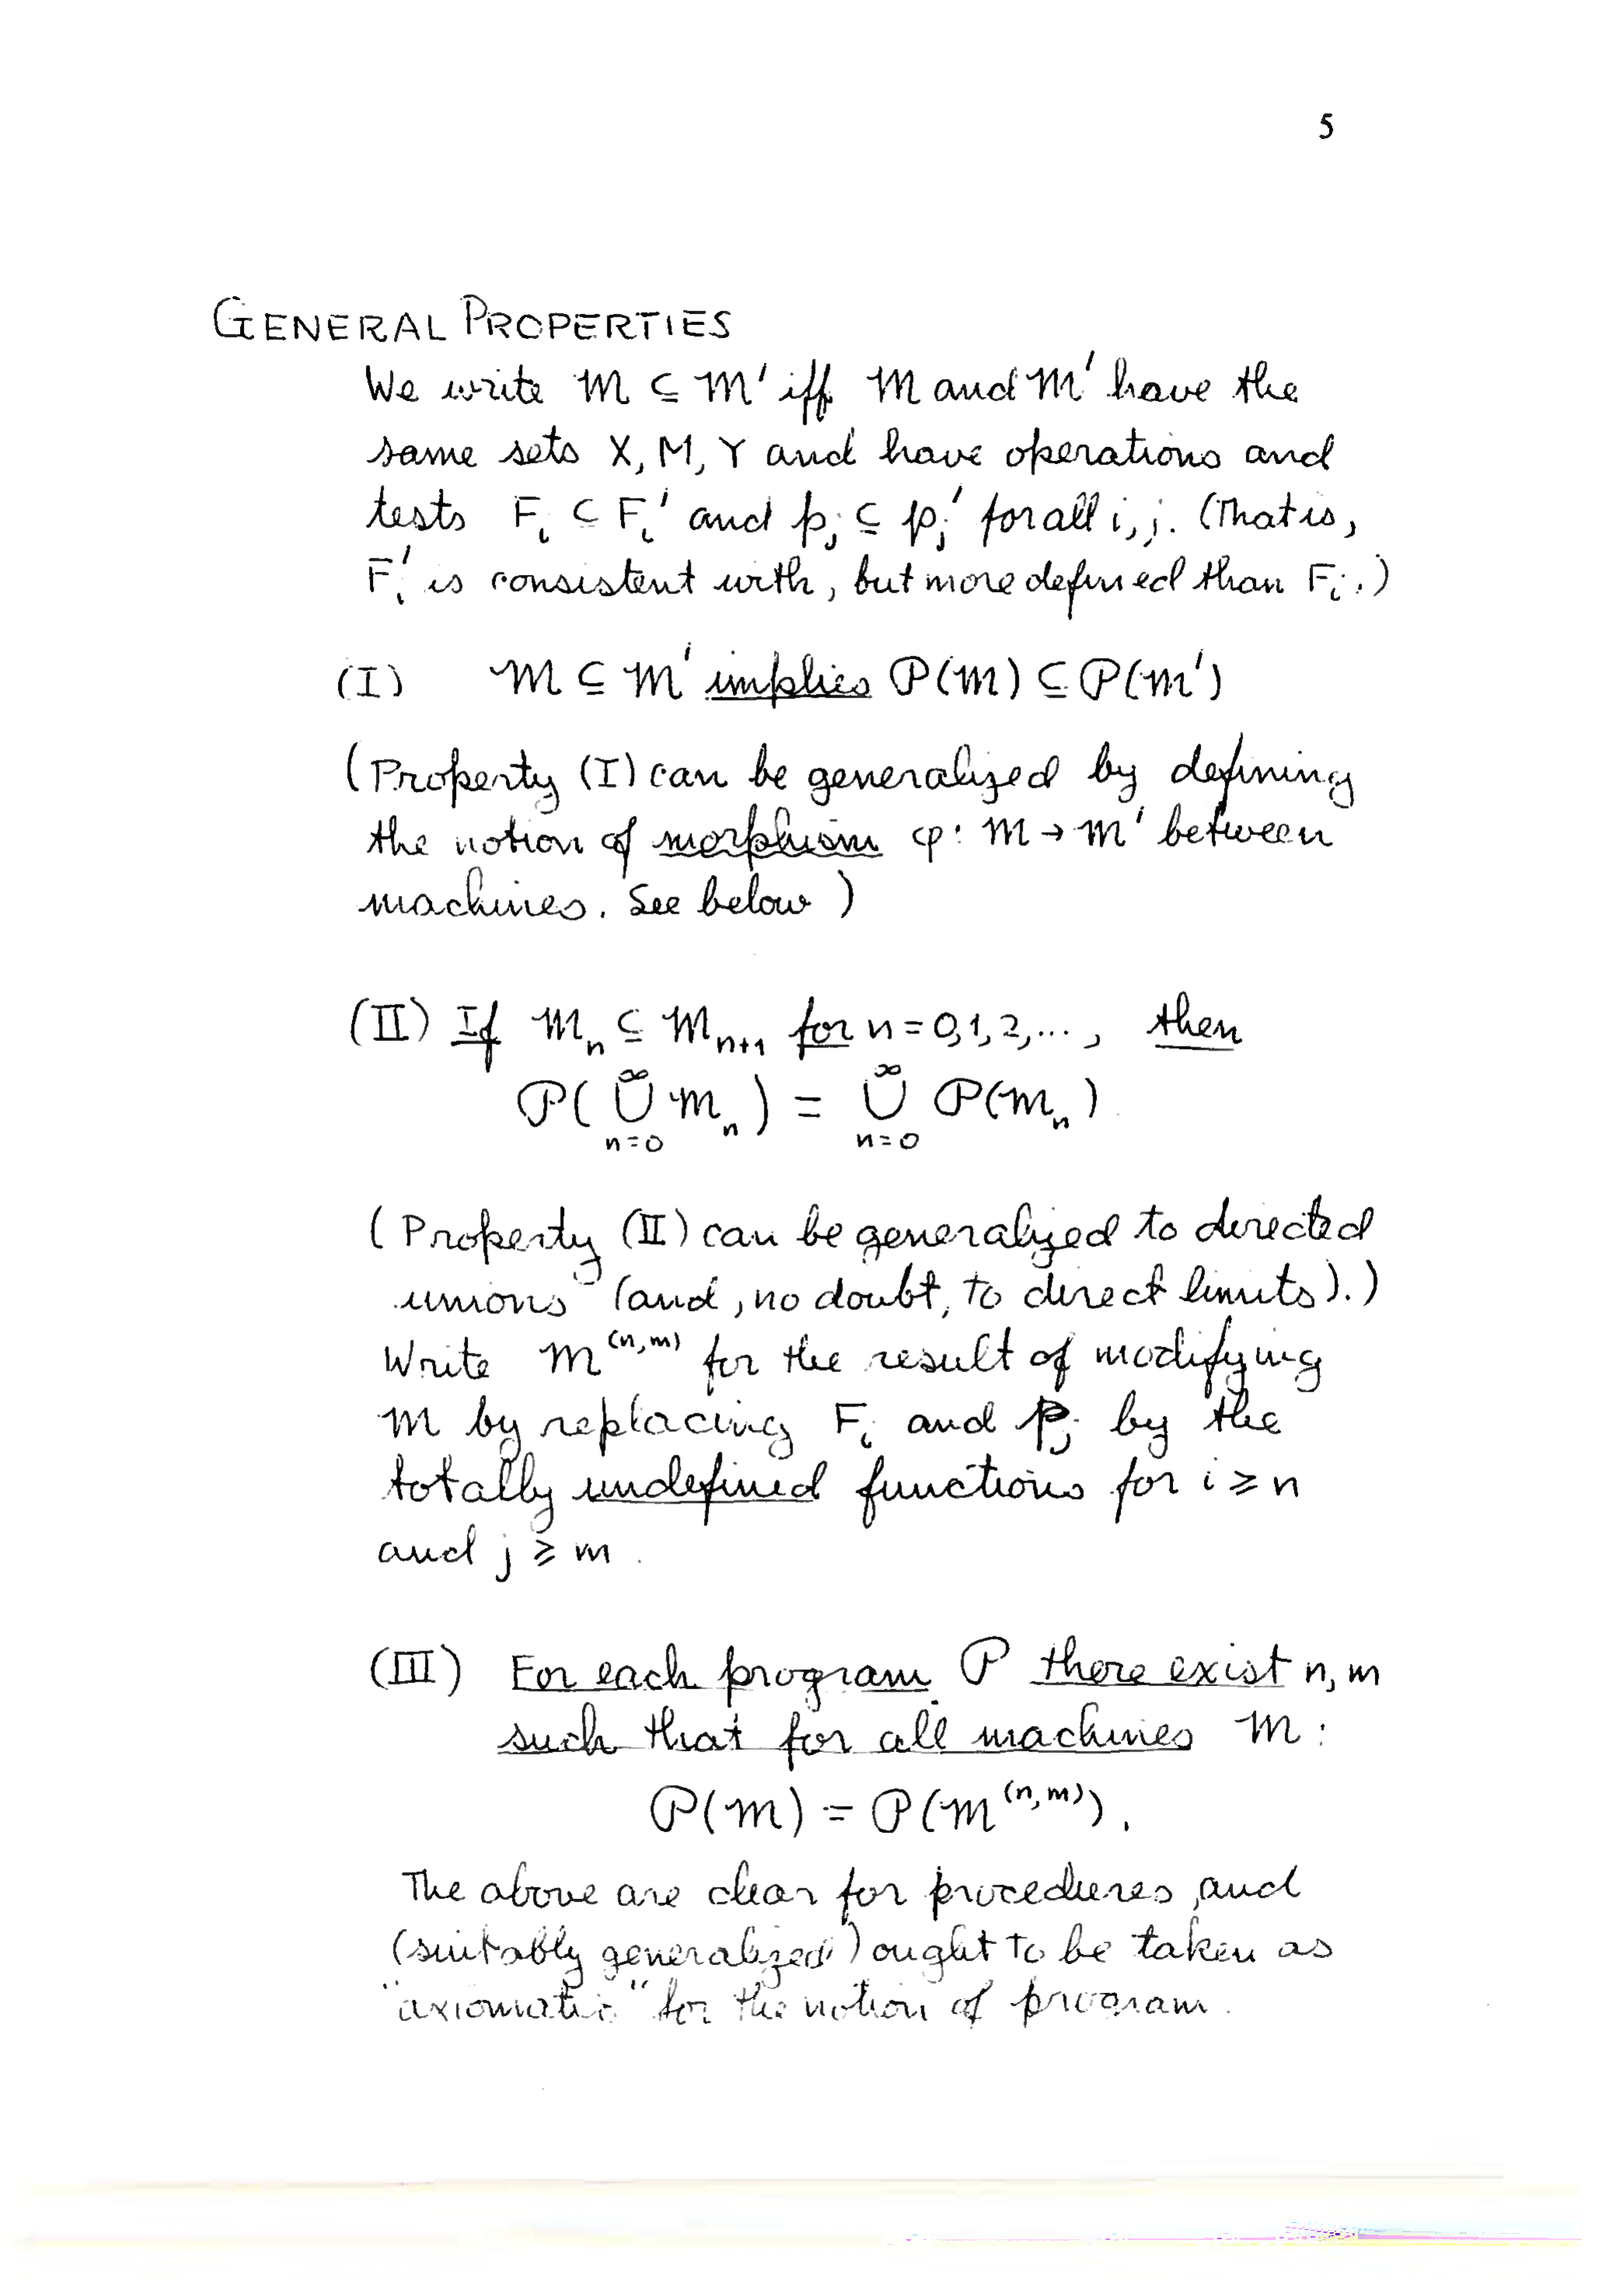 5
GENERAL PROPERTIES
We write 𝓜 ⊆ 𝓜' iff 𝓜 and 𝓜' have the
same sets X, M, Y and have operations and
tests F_i ⊆ F_i' and p_j ⊆ p_j' for all i, j. (That is,
F_i' is consistent with, but more defined than F_i.)
(I) 𝓜 ⊆ 𝓜' implies 𝒫(𝓜) ⊆ 𝒫(𝓜')
(Property (I) can be generalized by defining
the notion of morphism φ: 𝓜 → 𝓜' between
machines. See below)
(II) If 𝓜_n ⊆ 𝓜_{n+1} for n = 0, 1, 2, ..., then
𝒫( ⋃_{n=0}^∞ 𝓜_n ) = ⋃_{n=0}^∞ 𝒫(𝓜_n)
(Property (II) can be generalized to directed
unions (and, no doubt, to direct limits).)
Write 𝓜^(n,m) for the result of modifying
𝓜 by replacing F_i and p_j by the
totally undefined functions for i ⩾ n
and j ⩾ m.
(III) For each program 𝒫 there exist n, m
such that for all machines 𝓜:
𝒫(𝓜) = 𝒫(𝓜^(n,m)).
The above are clear for procedures, and
(suitably generalized) ought to be taken as
"axiomatic" for the notion of program.